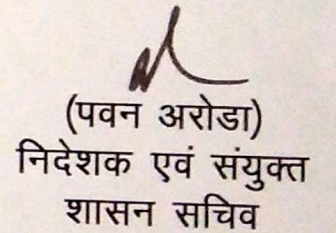 (पवन अरोडा)
निदेशक एवं संयुक्त
शासन सचिव